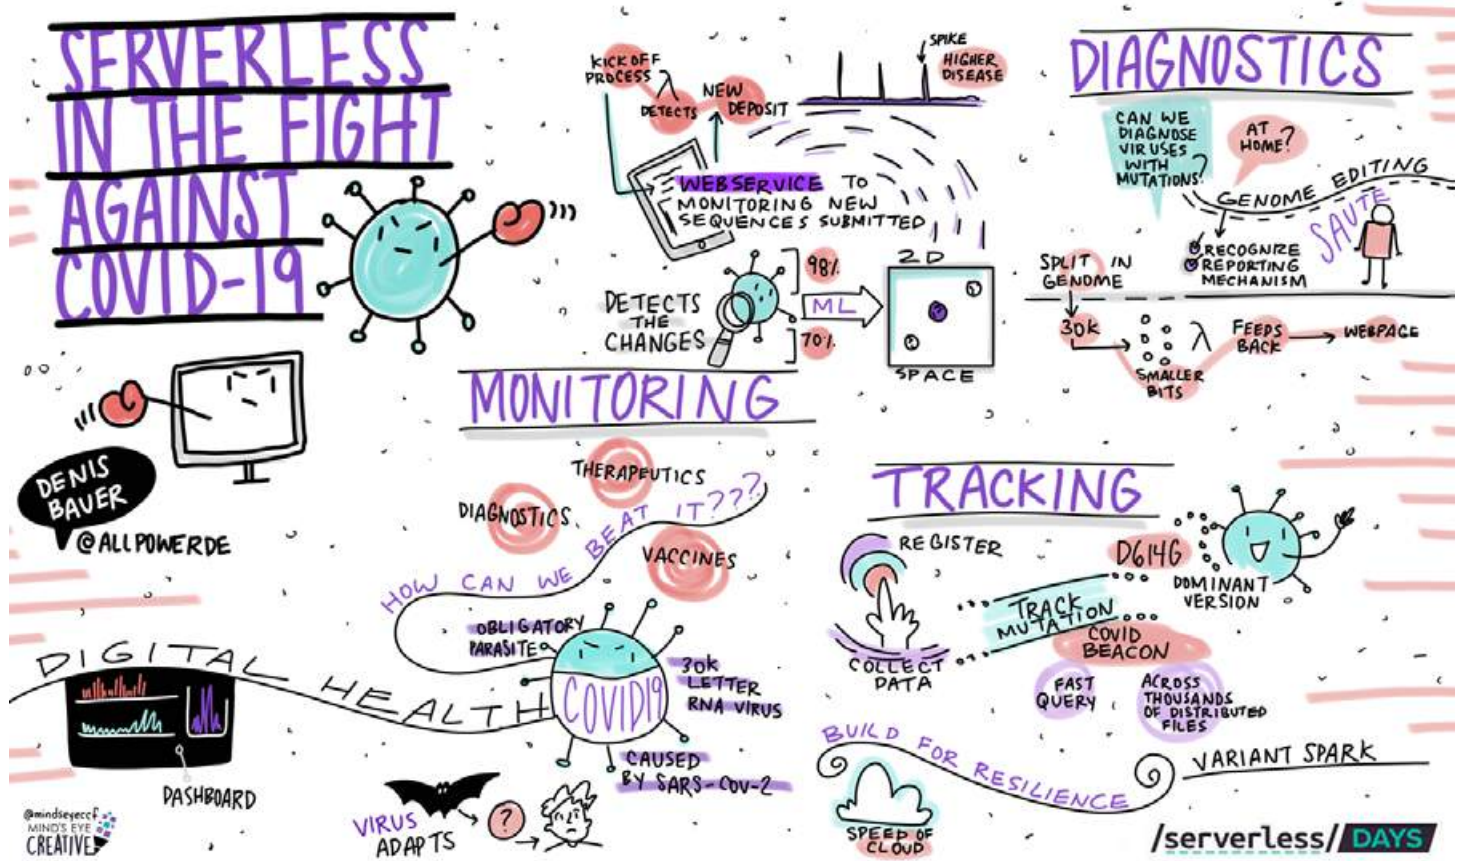 SERVERLESS
IN THE FIGHT
AGAINST
COVID-19
DENIS
BAUER
@ALLPOWERDE
KICK OFF
PROCESS
λ
DETECTS
NEW
DEPOSIT
SPIKE
HIGHER
DISEASE
WEBSERVICE TO
MONITORING NEW
SEQUENCES SUBMITTED
DETECTS
THE
CHANGES
98%
70%
ML
2D
SPACE
MONITORING
THERAPEUTICS
DIAGNOSTICS
VACCINES
HOW CAN WE BEAT IT???
OBLIGATORY
PARASITE
COVID19
30K
LETTER
RNA VIRUS
CAUSED
BY SARS-COV-2
DIGITAL HEALTH
DASHBOARD
VIRUS
ADAPTS
?
DIAGNOSTICS
CAN WE
DIAGNOSE
VIRUSES
WITH
MUTATIONS?
AT
HOME?
GENOME EDITING
RECOGNIZE
REPORTING
MECHANISM
SAUTE
SPLIT IN
GENOME
30K
SMALLER
BITS
λ
FEEDS
BACK
WEBPAGE
TRACKING
REGISTER
COLLECT
DATA
TRACK
MUTATION
D614G
DOMINANT
VERSION
COVID
BEACON
FAST
QUERY
ACROSS
THOUSANDS
OF DISTRIBUTED
FILES
BUILD FOR RESILIENCE
SPEED OF
CLOUD
VARIANT SPARK
@mindseyeccf
MIND'S EYE
CREATIVE
/serverless/DAYS